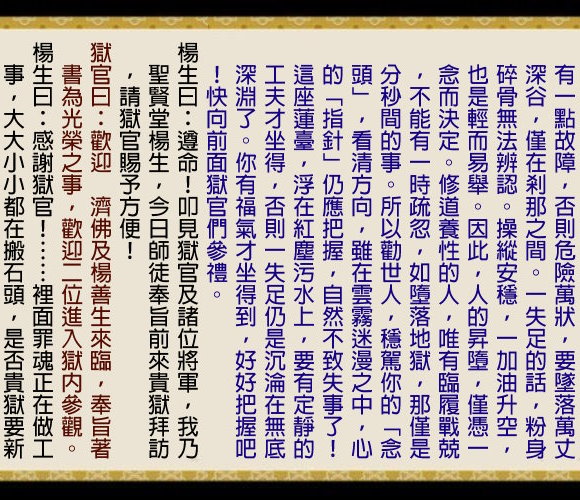 有一點故障，否則危險萬狀，要墜落萬丈
深谷，僅在剎那之間。一失足的話，粉身
碎骨無法辨認。操縱安穩，一加油升空，
也是輕而易舉。因此，人的昇墮，僅憑一
念而決定。修道養性的人，唯有臨履戰兢
，不能有一時疏忽，如墮落地獄，那僅是
分秒間的事。所以勸世人，穩駕你的「念
頭」，看清方向，雖在雲霧迷漫之中，心
的「指針」仍應把握，自然不致失事了！
這座蓮臺，浮在紅塵污水上，要有定靜的
工夫才坐得，否則一失足仍是沉淪在無底
深淵了。你有福氣才坐得到，好好把握吧
！快向前面獄官們參禮。
楊生曰：遵命！叩見獄官及諸位將軍，我乃
聖賢堂楊生，今日師徒奉旨前來貴獄拜訪
，請獄官賜予方便！
獄官曰：歡迎　濟佛及楊善生來臨，奉旨著
書為光榮之事，歡迎二位進入獄內參觀。
楊生曰：感謝獄官！……裡面罪魂正在做工
事，大大小小都在搬石頭，是否貴獄要新